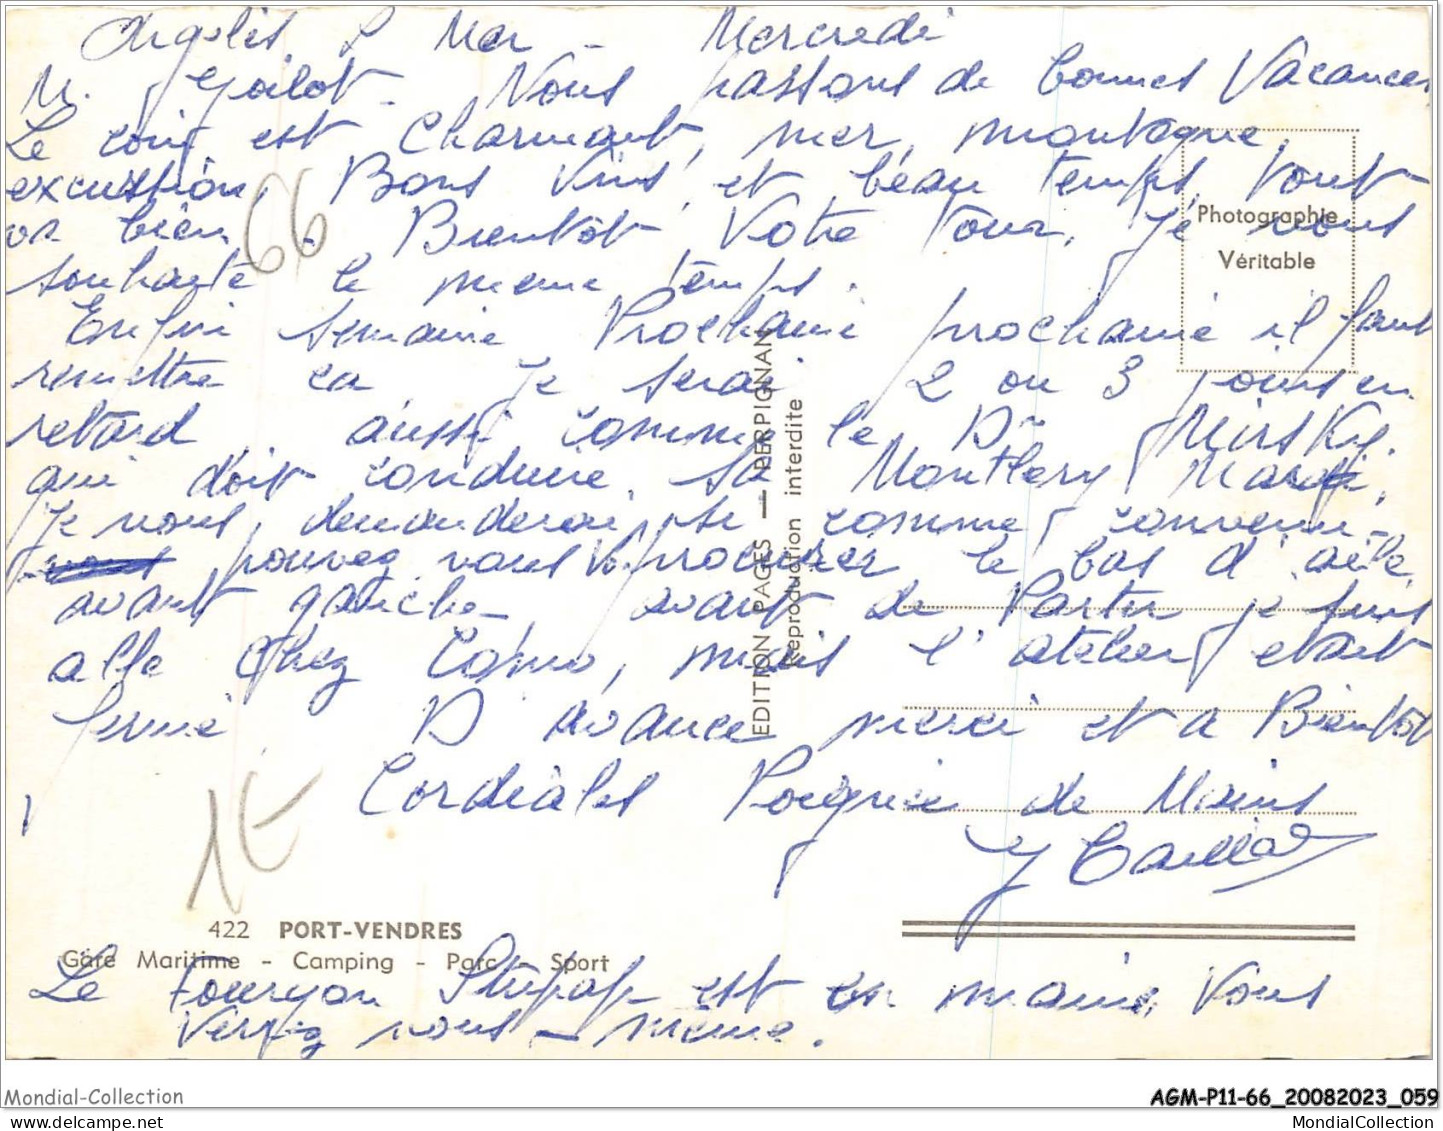 Argelès S Mer - Mercredi
M. Nous passons de bonnes Vacances
Le coin est Charmant, mer, montagne,
excursion, Bons Vins, et beau temps, tout
va bien. Bientôt Votre Tour, Je vous
souhaite le meme temps.
Enfin semaine Prochaine prochaine il faut
remettre ca Je serai 2 ou 3 jours en
retard, aussi comme le Dr Mirsky.
qui doit conduire sa Montlery Mardi,
Je vous demanderai, si comme convenu -
pouvez vous procurer le bas d'aile
avant gauche, avant de Partir je suis
alle Chez Como, mais l'atelier etait
fermé. D'avance merci et a Bientôt
Cordiales Poignée de Mains
66
1E
Photographie
Véritable
EDITION PAGES — PERPIGNAN
Reproduction interdite
422 PORT-VENDRES
Gare Maritime - Camping - Parc - Sport
Le Fourgon est en mains, Vous
Verrez vous-même.
Mondial-Collection
AGM-P11-66_20082023_059
MondialCollection